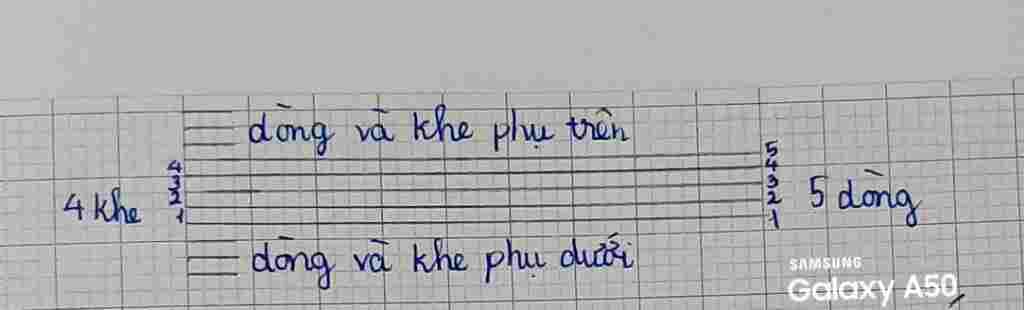 dòng và khe phụ trên
4 khe
4
3
2
1
5
4
3
2
1
5 dòng
dòng và khe phụ dưới
SAMSUNG
Galaxy A50